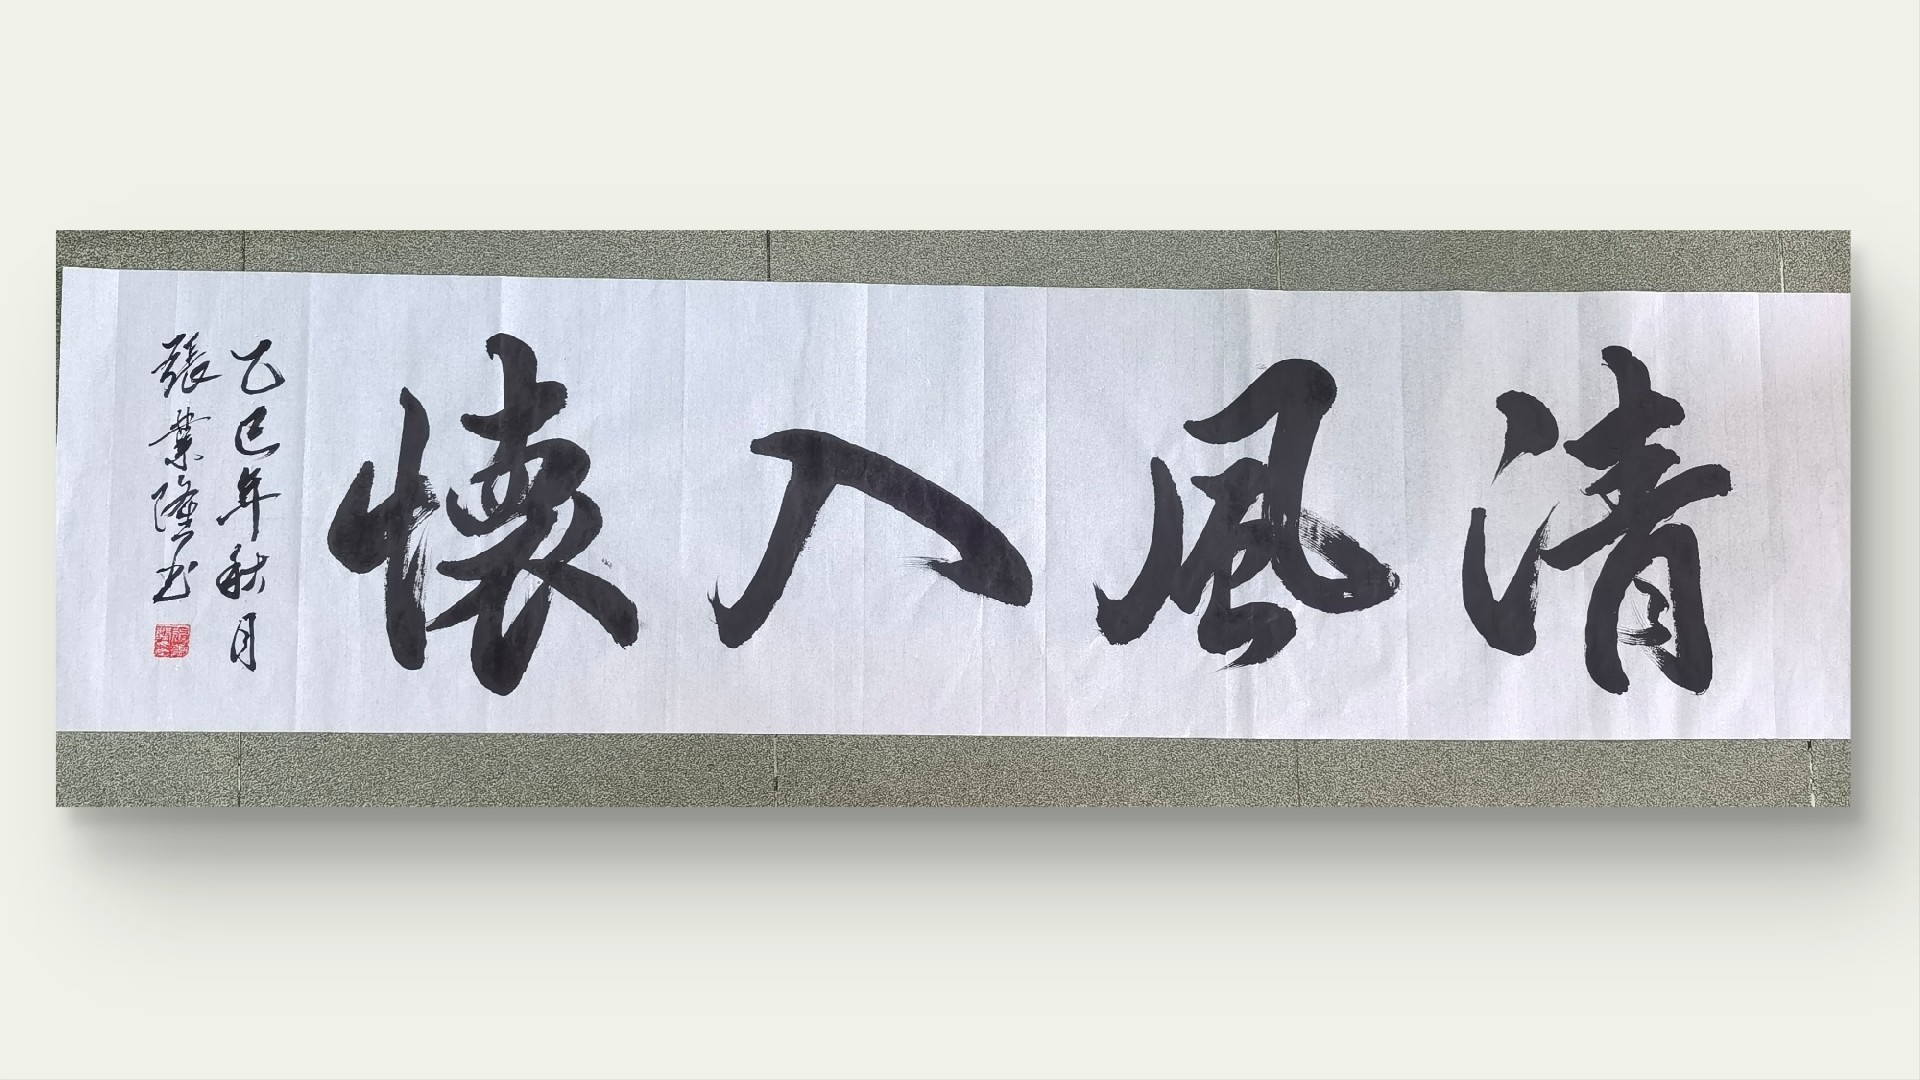 清風入懷
乙巳年秋月
張業隆书